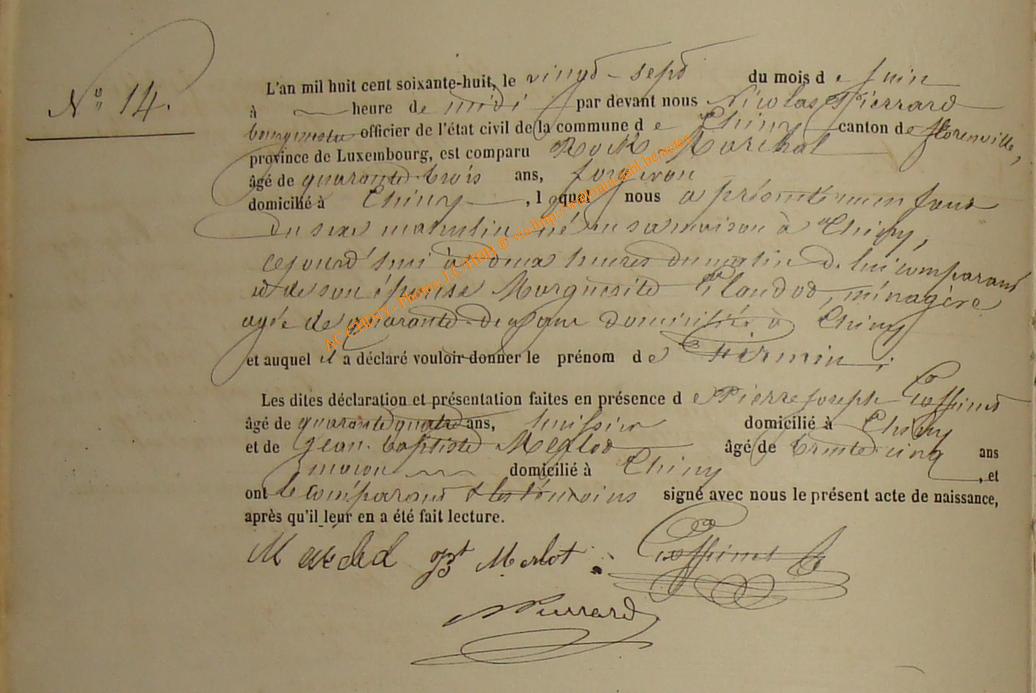 N° 14.
L'an mil huit cent soixante-huit, le vingt-sept du mois de Juin
à heure de midi par devant nous Nicolas Pierrard
bourgmestre officier de l'état civil de la commune de Chiny canton de florenville,
province de Luxembourg, est comparu Roch Maréchal
âgé de quarante trois ans, forgeron
domicilié à Chiny, lequel nous a présenté un enfant
du sexe masculin né en sa maison à Chiny,
cejourd'hui à deux heures du matin de lui comparant
et de son épouse Marguerite, ménagère
agée de quarante-deux ans domiciliée à Chiny
et auquel il a déclaré vouloir donner le prénom de Firmin;
Les dites déclaration et présentation faites en présence de Pierre Joseph
âgé de quarante quatre ans, huissier domicilié à Chiny
et de Jean-baptiste Merlot âgé de trente cinq ans
maçon domicilié à Chiny, et
ont le comparant & les témoins signé avec nous le présent acte de naissance,
après qu'il leur en a été fait lecture.
Maréchal JBt Merlot
NPierrard
AC CHINY - Photos J.C. HERI